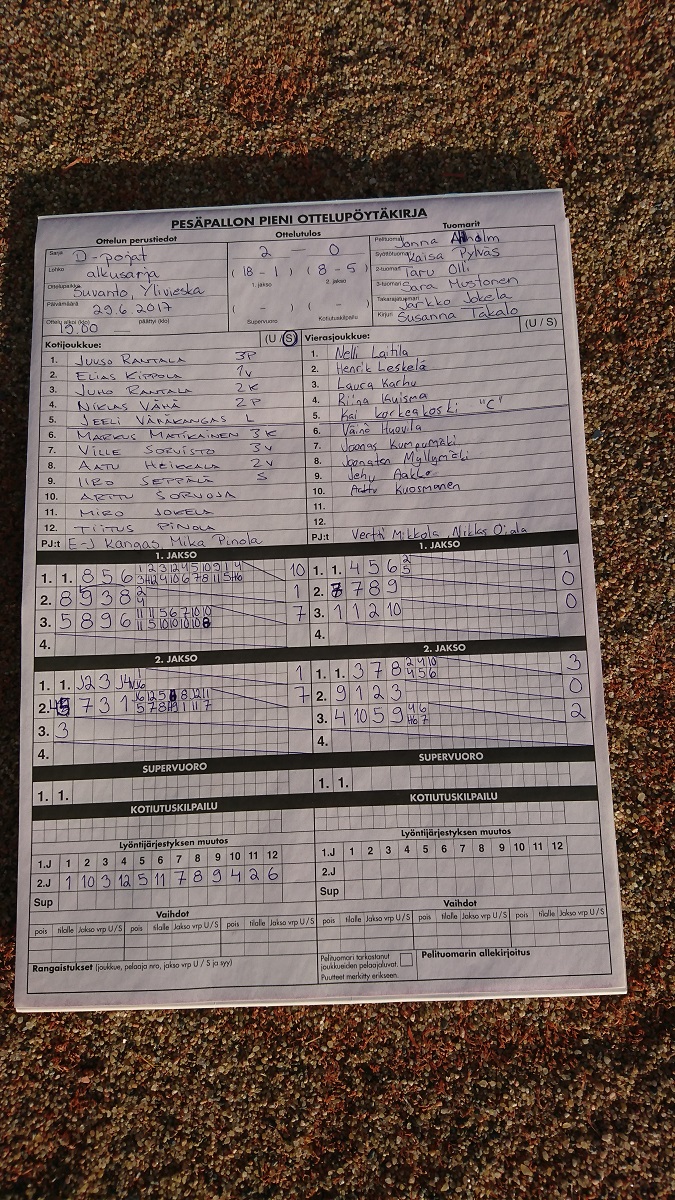 PESÄPALLON PIENI OTTELUPÖYTÄKIRJA
Ottelun perustiedot
Sarja D-pojat
Lohko alkusarja
Ottelupaikka Suvanto, Ylivieska
Päivämäärä 29.6.2017
Ottelu alkoi (klo) 15.00 päättyi (klo)
Ottelutulos
2 - 0
( 18 - 1 ) ( 8 - 5 )
1. jakso 2. jakso
( - ) ( - )
Supervuoro Kotiutuskilpailu
Tuomarit
Pelituomari Jonna
Syöttötuomari Kaisa Pylväs
2-tuomari Taru Olli
3-tuomari Sara Mustonen
Takarajatuomari Jarkko Jokela
Kirjuri Susanna Takalo
Kotijoukkue: (U / S)
1. JUUSO RANTALA 3P
2. ELIAS KIPPOLA 1V
3. JUHO RANTALA 2K
4. NIKLAS VÄHÄ 2P
5. JEELI VÄHÄKANGAS L
6. MARKUS MATIKAINEN 3K
7. VILLE SORVISTO 3V
8. AATU HEIKKALA 2V
9. IIRO SEPPÄLÄ S
10. ARTTU SORVOJA
11. MIRO JOKELA
12. TIITUS PINOLA
PJ:t E-J Kangas, Mika Pinola
Vierasjoukkue: (U / S)
1. Nelli Laitila
2. Henrik Leskelä
3. Laura Karhu
4. Riina Kuisma
5. Kai Korkeakoski "C"
6. Väinö Huovila
7. Joonas Kumpumäki
8. Joonatan Myllymäki
9. Jehu Aakko
10. Aattu Kuosmanen
11.
12.
PJ:t Vertti Mikkola, Niklas Ojala
1. JAKSO
1. 1. 8 5 6 10
2. 8 9 3 8 1
3. 5 8 9 6 7
4.
1. JAKSO
1. 1. 4 5 6 2 5 1
2. 7 8 9 0
3. 1 1 2 10 0
4.
2. JAKSO
1. 1. 12 3 1
2. 7 3 1 7
3. 3
4.
2. JAKSO
1. 1. 3 7 8 2 4 10 4 5 6 3
2. 9 1 2 3 0
3. 4 10 5 9 2
4.
SUPERVUORO
1. 1.
SUPERVUORO
1. 1.
KOTIUTUSKILPAILU
KOTIUTUSKILPAILU
Lyöntijärjestyksen muutos
1.J 1 2 3 4 5 6 7 8 9 10 11 12
2.J 1 10 3 12 5 11 7 8 9 4 2 6
Sup
Lyöntijärjestyksen muutos
1.J 1 2 3 4 5 6 7 8 9 10 11 12
2.J
Sup
Vaihdot
pois tilalle Jakso vrp U / S pois tilalle Jakso vrp U / S pois tilalle Jakso vrp U / S
Vaihdot
pois tilalle Jakso vrp U / S pois tilalle Jakso vrp U / S pois tilalle Jakso vrp U / S
Rangaistukset (joukkue, pelaaja nro, jakso vrp U / S ja syy)
Pelituomari tarkastanut
joukkueiden pelaajaluvat.
Puutteet merkitty erikseen.
Pelituomarin allekirjoitus